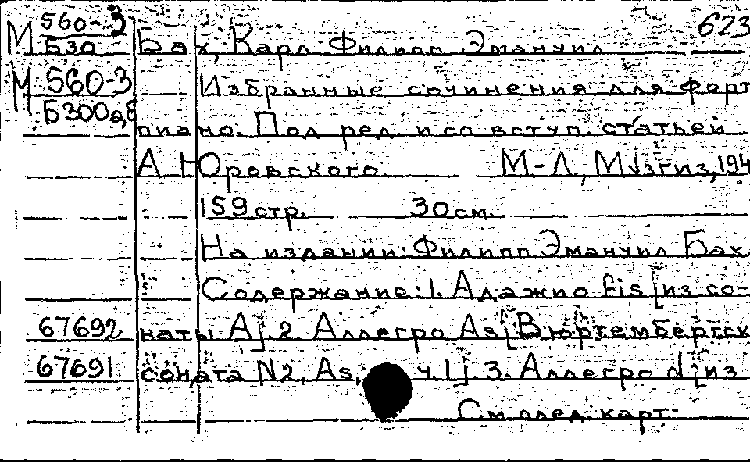 М 560-3 Б30 Бах, Карл Филипп Эмануил 623
М 560-3 Избранные сочинения для форт
Б300а,б пиано. Под ред. и со вступ. статьей
А. Юровского. М-Л, Музгиз, 194
159 стр. 30 см.
На издании: Филипп Эмануил Бах
Содержание: 1. Адажио fis [из со-
67692 наты А]. 2. Аллегро As [Вюртембергск
67691 соната N2, As, ч. 1]. 3. Аллегро d [из
См. след. карт.